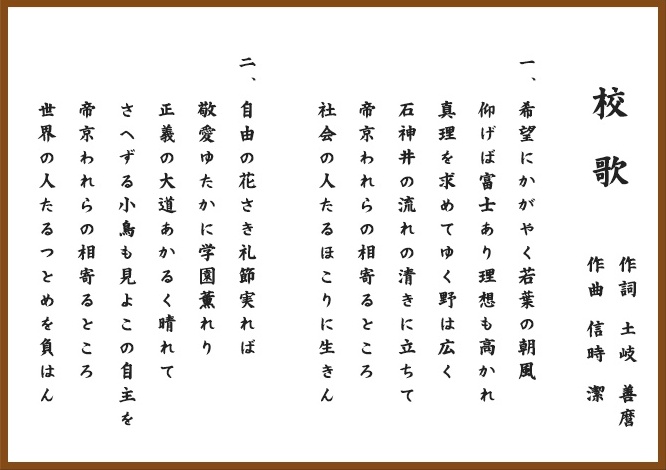 校歌
作詞 土岐 善麿
作曲 信時 潔
一、希望にかがやく若葉の朝風
仰げば富士あり理想も高かれ
真理を求めてゆく野は広く
石神井の流れの清きに立ちて
帝京われらの相寄るところ
社会の人たるほこりに生きん
二、自由の花さき礼節実れば
敬愛ゆたかに学園薫れり
正義の大道あかるく晴れて
さへずる小鳥も見よこの自主を
帝京われらの相寄るところ
世界の人たるつとめを負はん